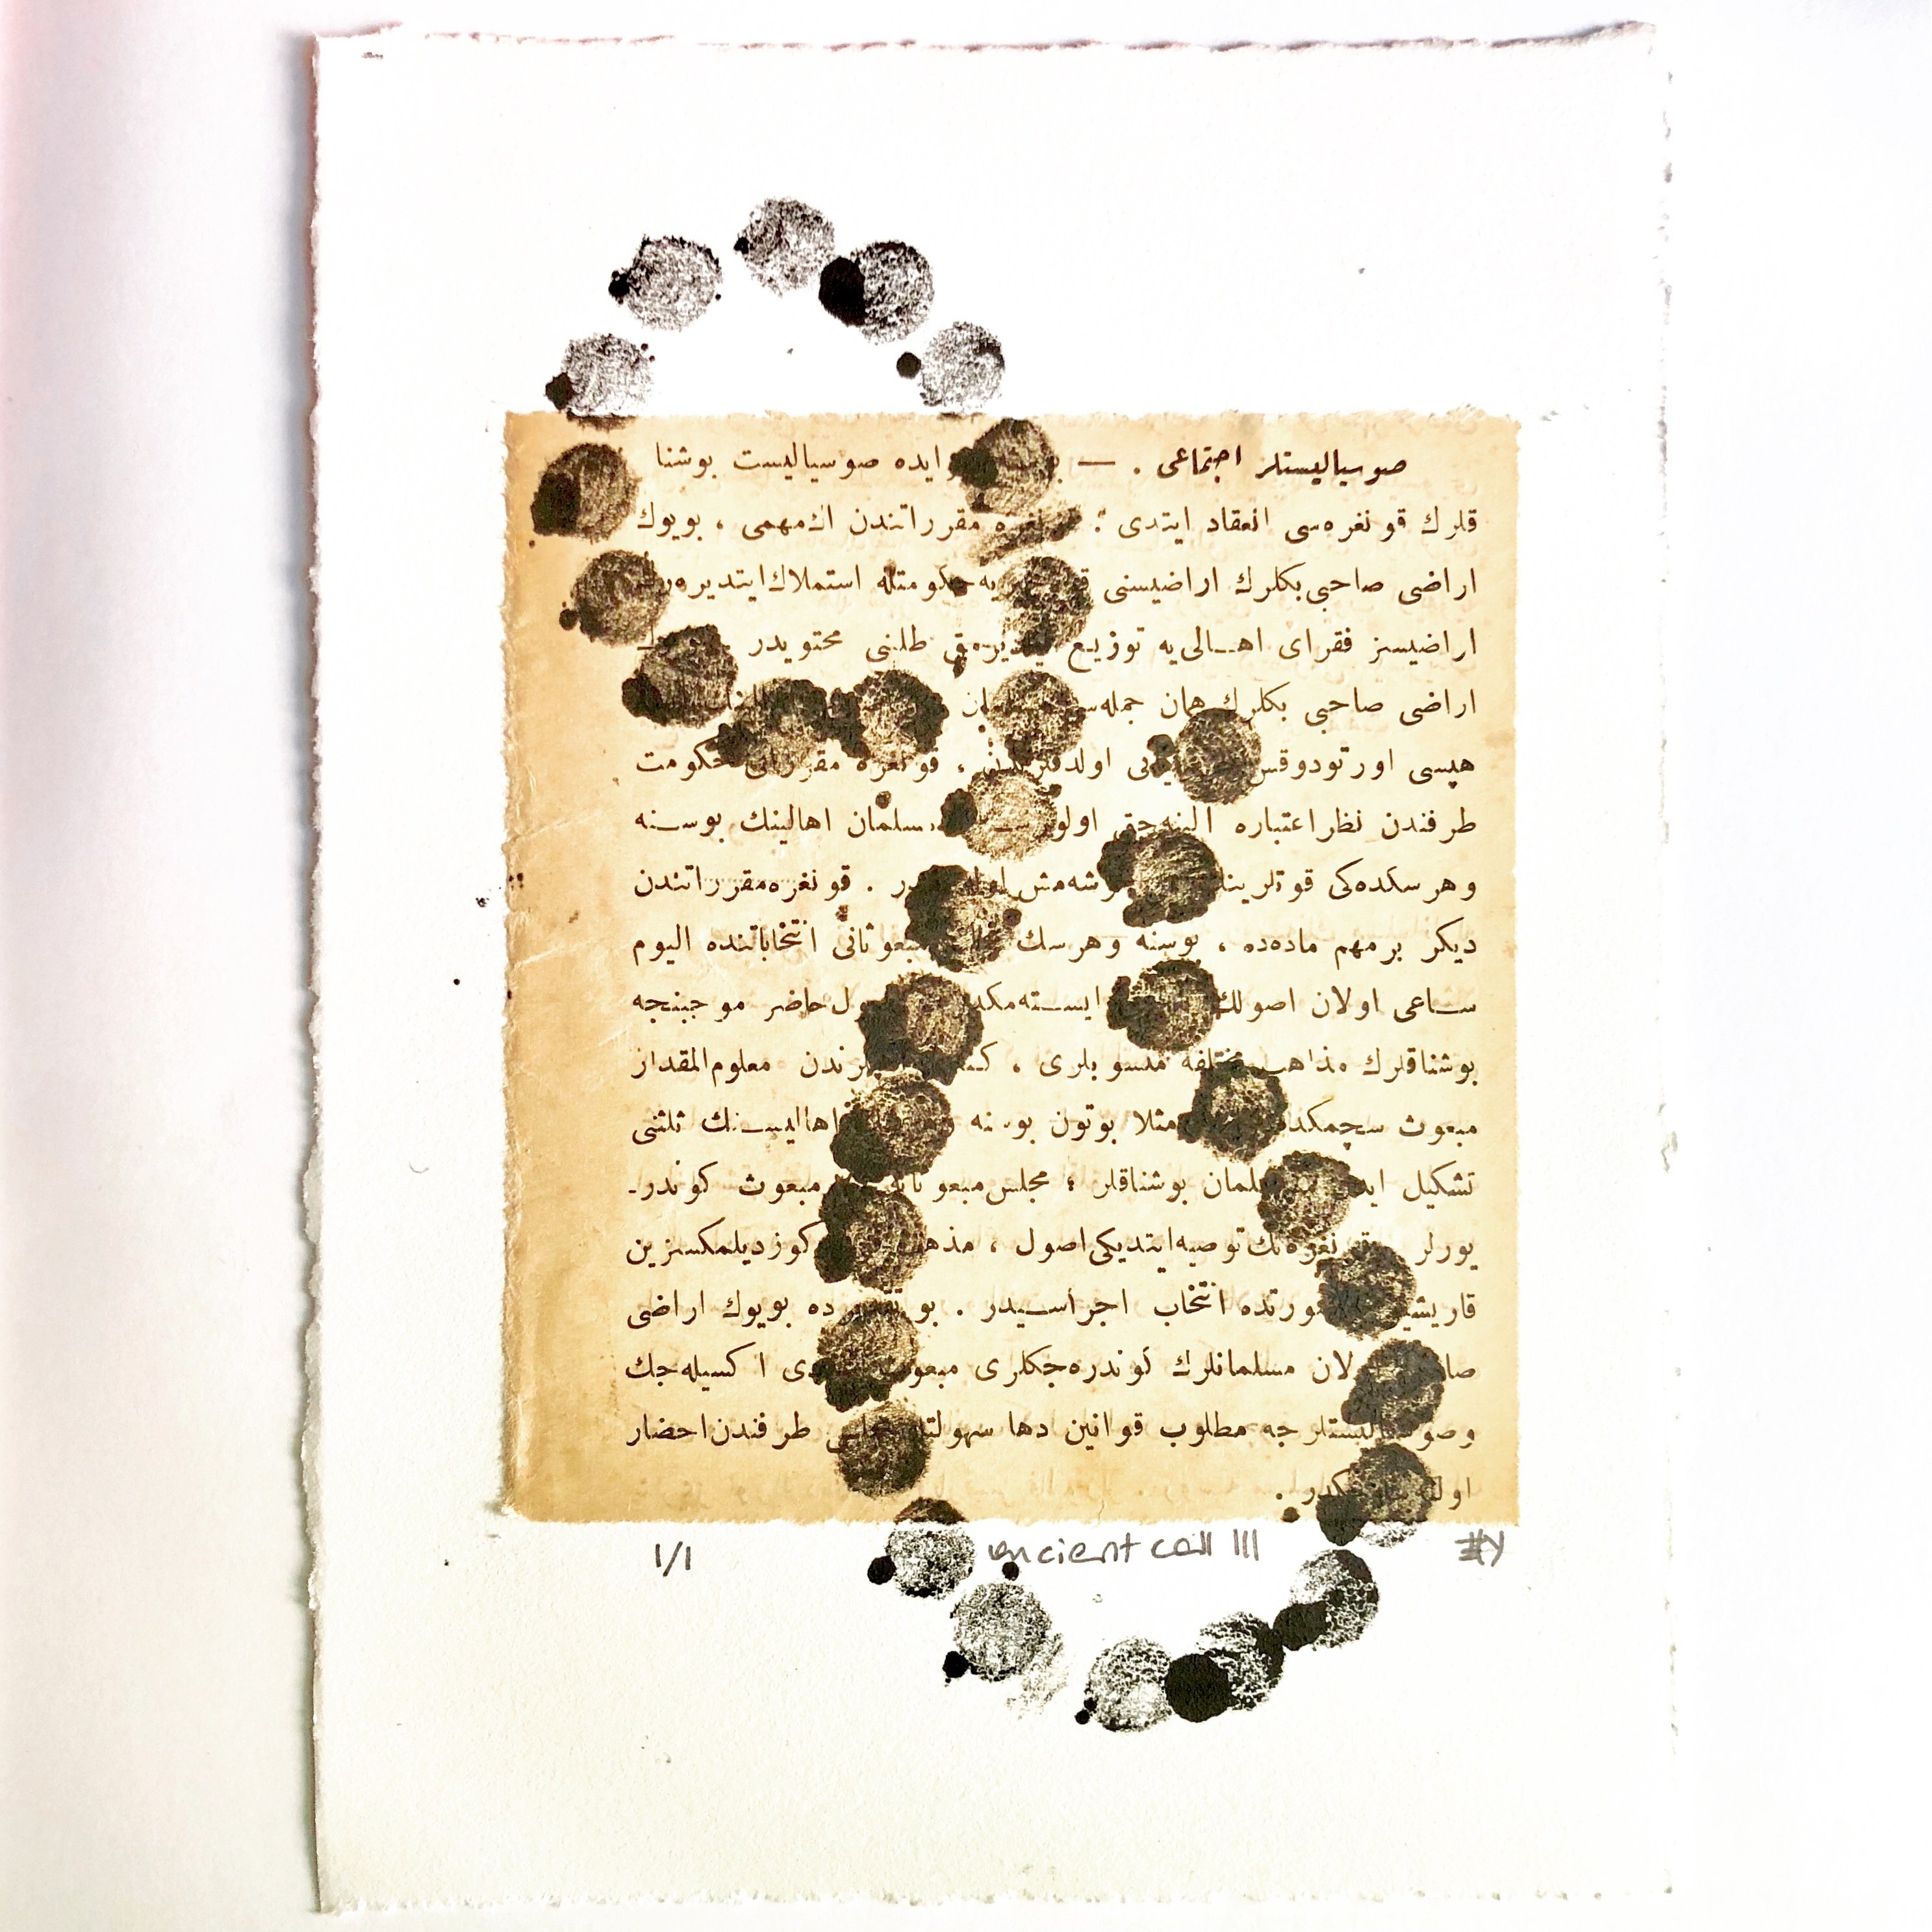 صوسیالیستلر اجتماعی . — ایده صوسیالیست بوشنا
قلرك قونغره‌سی انعقاد ایتدی . مقرراتندن اك مهمی ، بویوك
اراضی صاحبی بكلرك اراضیسنی حكومتله استملاك ایتدیره‌رك
اراضیسز فقرای اهالی‌یه توزیع طلبنی محتویدر
اراضی صاحبی بكلرك همان جمله‌سی
هپسی اورتودوقس اولدقلرندن ، قونغره مقرراتی حكومت
طرفندن نظر اعتباره آلینه‌جق اولورسه مسلمان اهالینك بوسنه
وهرسكده‌كی قوتلرینك . قونغره مقرراتندن
دیكر بر مهم ماده‌ده ، بوسنه وهرسك مبعوثانی انتخاباتنده الیوم
ساعی اولان اصولك ایسته‌مكده حاضر موجبنجه
بوشناقلرك مذاهب مختلفه منسوبلری ، كندیلرندن معلوم المقدار
مبعوث سچمكده مثلا بوتون بوسنه اهالیسنك ثلثنی
تشكیل ایدن مسلمان بوشناقلر ؛ مجلس مبعوثانه مبعوث كوندر-
یورلر قونغره‌نك توصیه ایتدیكی اصول ، مذهب كوزدیلمكسزین
قاریشیق صورتده انتخاب اجراسیدر . بو تقدیرده بویوك اراضی
صاحبی اولان مسلمانلرك كوندره‌جكلری مبعوث اكسیله‌جك
وصوسیالیستلرجه مطلوب قوانین دها سهولتله مجلس طرفندن احضار
اولنه‌بیله‌جكدر .
1/1 ancient cell III